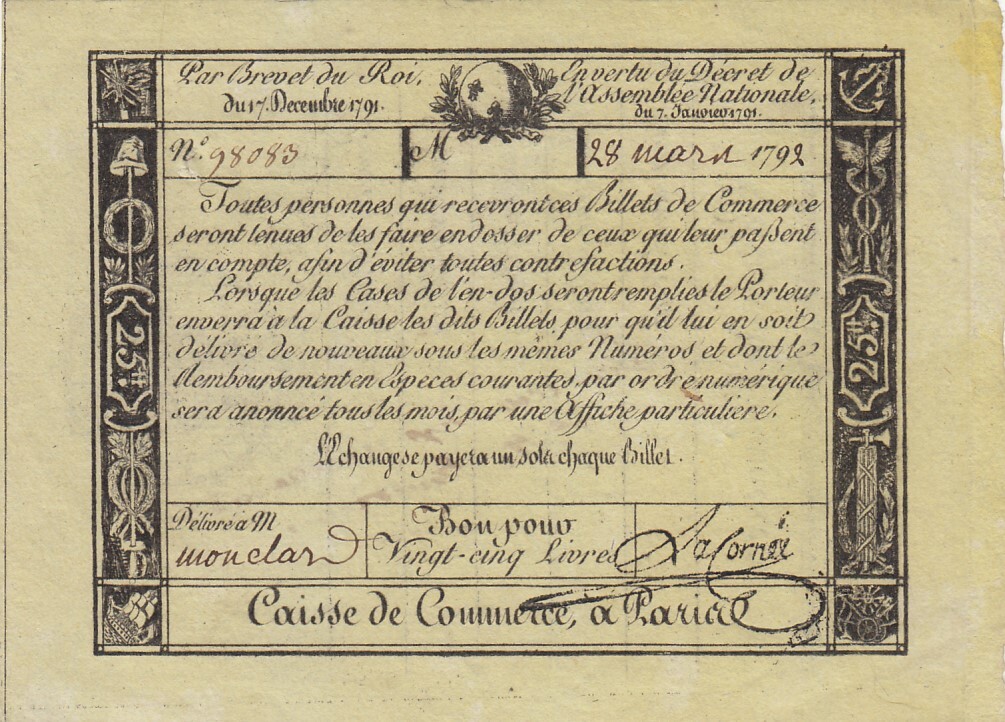 Par Brevet du Roi,
du 17. Decembre 1791.
En vertu du Décret de
l'Assemblée Nationale,
du 7. Janvier 1791.
N.° 98083
M
28 mars 1792
Toutes personnes qui recevront ces Billets de Commerce
seront tenues de les faire endosser de ceux qui leur passent
en compte, afin d'éviter toutes contrefactions.
Lorsque les Cases de l'en-dos seront remplies le Porteur
enverra à la Caisse les dits Billets, pour qu'il lui en soit
délivré de nouveaux sous les mêmes Numéros et dont le
Remboursement en Espèces courantes, par ordre numérique
sera anoncé tous les mois, par une Affiche particuliere.
L'Echange se payera un sol à chaque Billet.
25tt
25tt
Délivré à M
monclar
Bon pour
Vingt-cinq Livres
La Cornée
Caisse de Commerce, à Paris